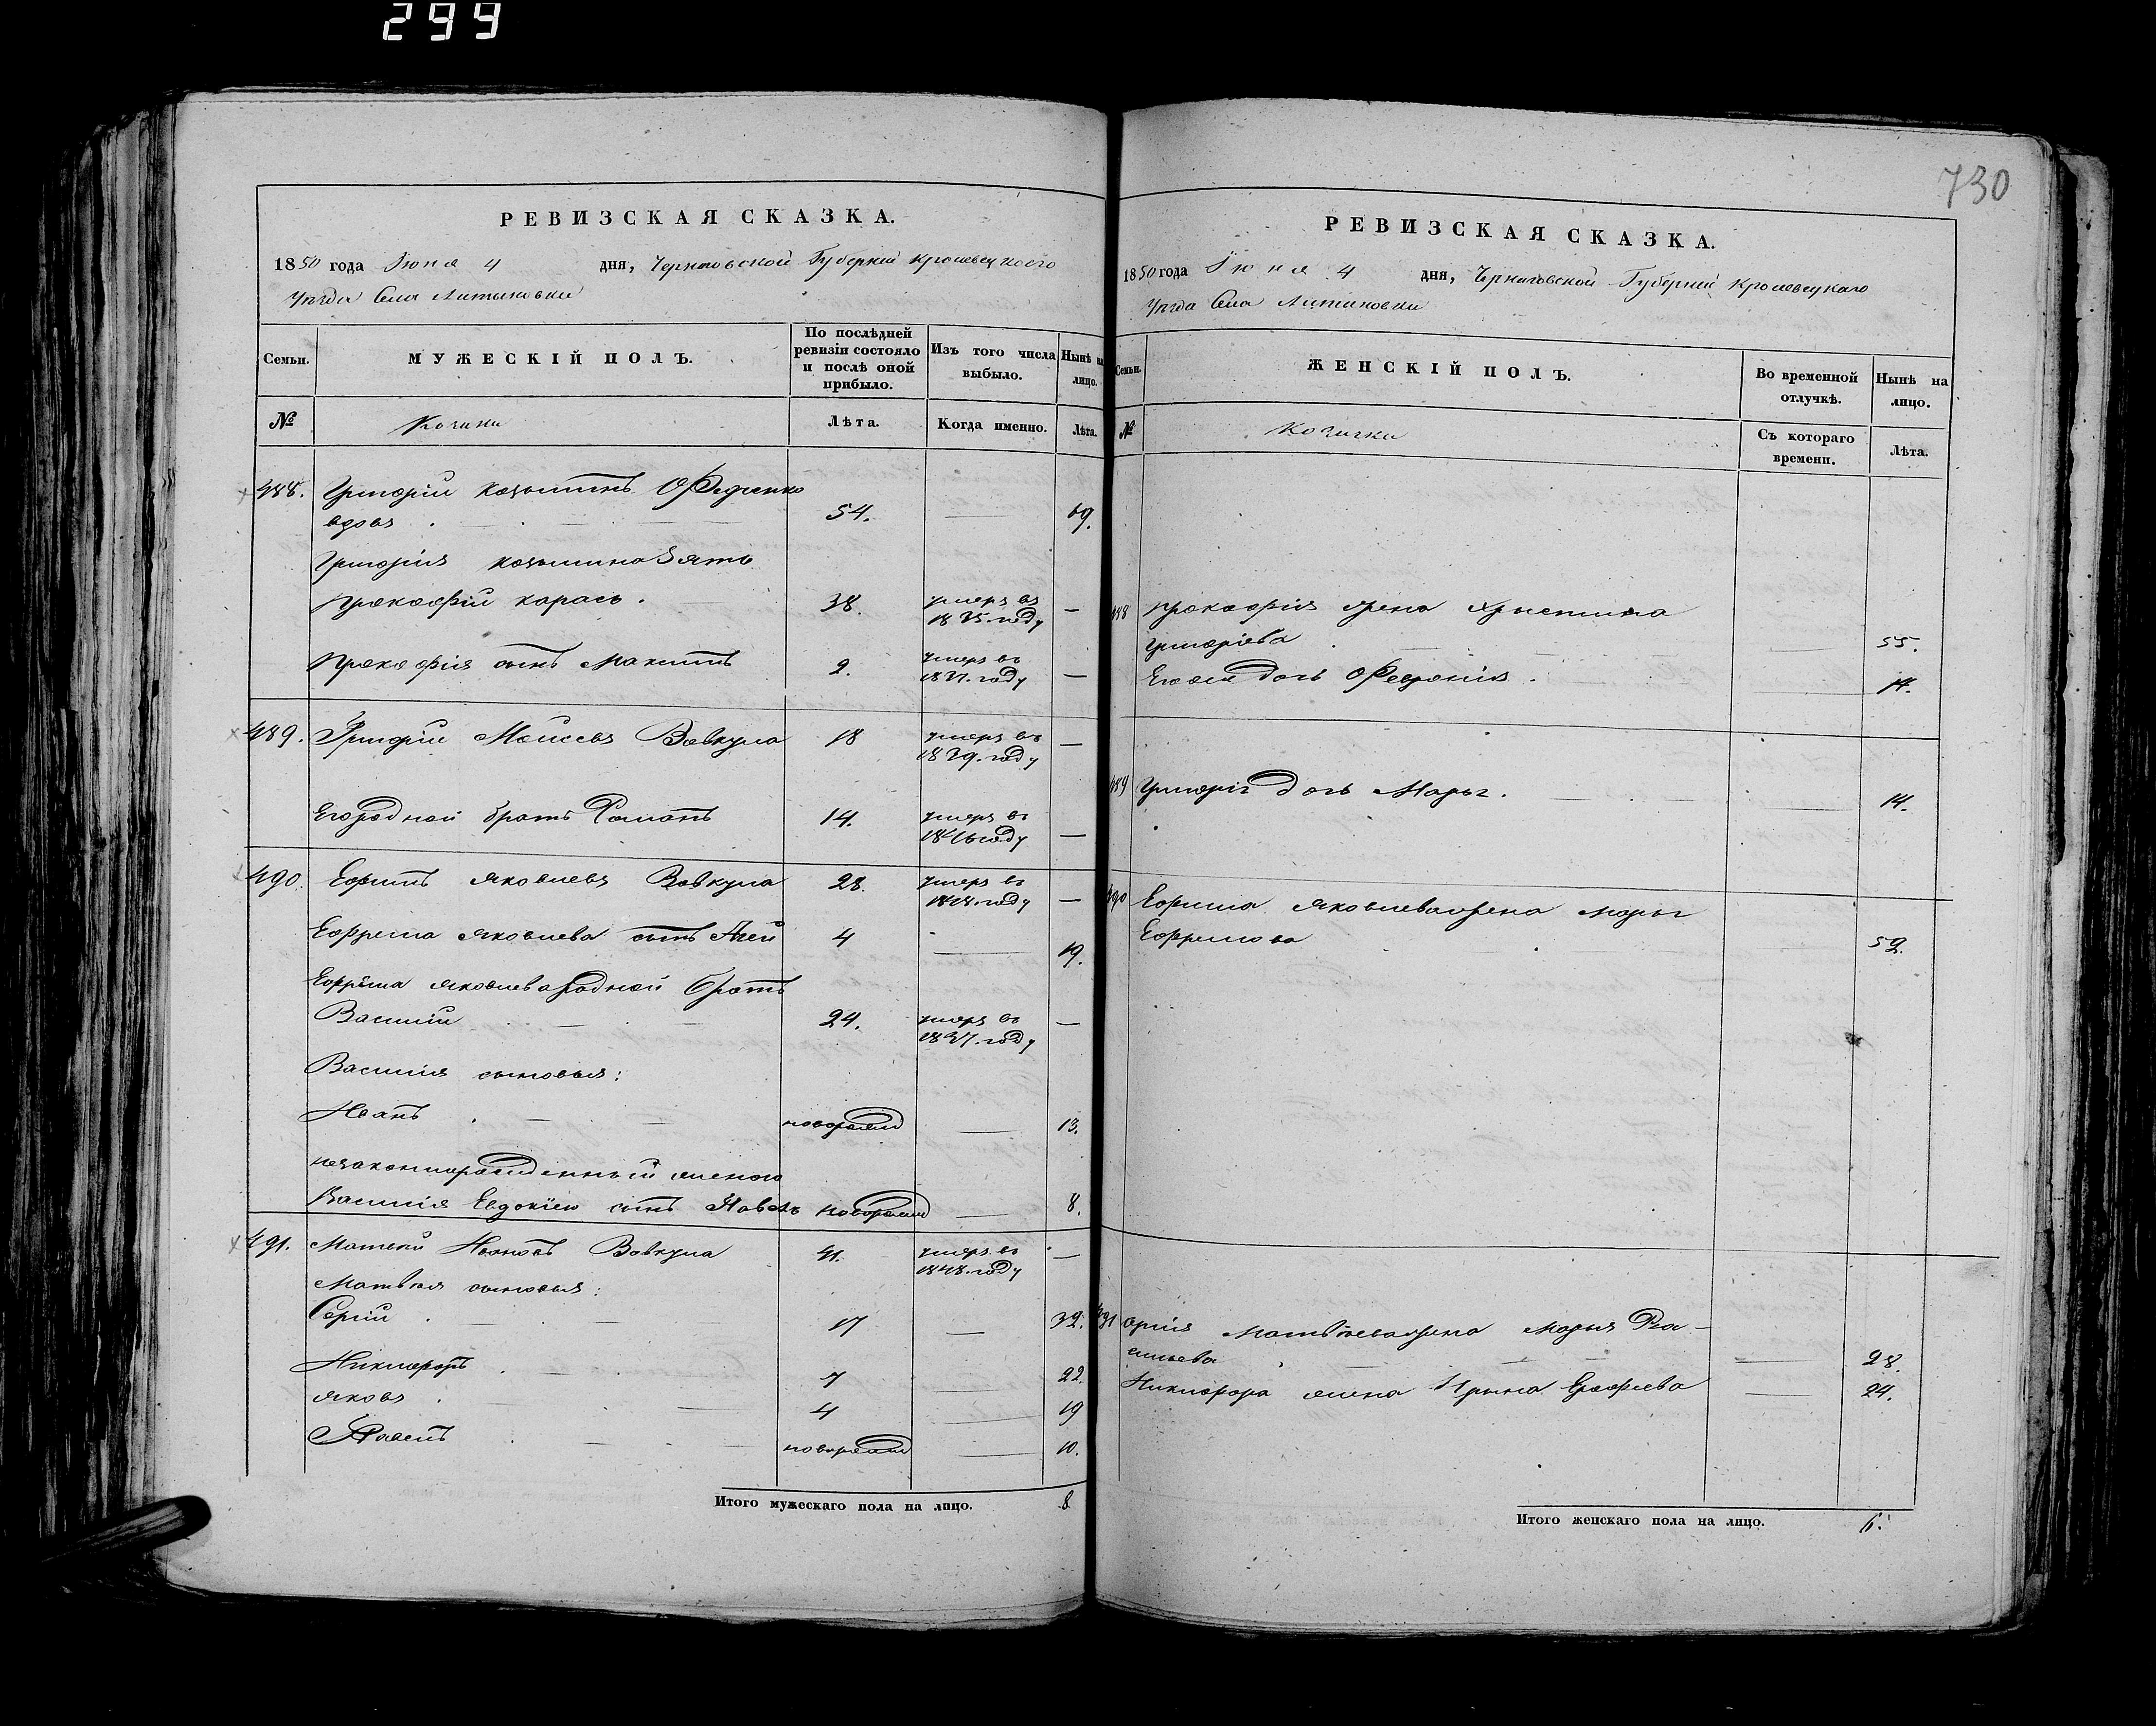 299
РЕВИЗСКАЯ СКАЗКА.
1850 года Іюня 4 дня, Черниговской Губерніи Кролевецкаго
Уѣзда Села Литвиновки
Семьи. МУЖЕСКІЙ ПОЛЪ. По послѣдней ревизіи состояло и послѣ оной прибыло. Изъ того числа выбыло. Нынѣ на лицо.
№ Козаки Лѣта. Когда именно. Лѣта.
488. Григорій Козьминъ
вдовъ 54. — 69.
Григорія Козьмина Зять
Прокофій Карась. 38. умеръ въ 1835. году —
Прокофія сынъ Максимъ 2. умеръ въ 1837. году —
489. Григорій Моисеевъ Вовкула 18 умеръ въ 1839. году —
Его родной братъ Романъ 14. умеръ въ 1846 году —
490. Ефремъ Яковлевъ Вовкула 28. умеръ въ году —
Ефрема Яковлева сынъ 4 — 19.
Ефрема Яковлева родной братъ
Василій — — 24. умеръ въ 1837. году —
Василія сыновья:
Иванъ . — — новорожд — 13.
незаконнорожденный женою
Василія Евдокіею сынъ Павелъ новорожд — 8.
491. Матвей Ивановъ Вовкула 41. умеръ въ 1848. году —
Матвея сыновья:
Сергій . — — 17 — 32.
Никифоръ . — 7 — 22.
Яковъ . — 4 — 19
Павелъ . — — новорожд — 10.
Итого мужескаго пола на лицо. 8
730
РЕВИЗСКАЯ СКАЗКА.
1850 года Іюня 4 дня, Черниговской Губерніи Кролевецкаго
Уѣзда Села Литвиновки
Семьи. ЖЕНСКІЙ ПОЛЪ. Во временной отлучкѣ. Нынѣ на лицо.
№ Козачки Съ котораго времени. Лѣта.
488 Прокофія жена Христина
Григорієва — 55.
Его дочь — 14.
489 Григорія дочь Марья. — 14.
490 Ефрема Яковлева жена Марья
Ефремова 52.
491 Сергія Матвѣева жена Марья Ва-
сильева — 28.
Никифора жена Ирина Ерофеева — 24.
Итого женскаго пола на лицо. 6.